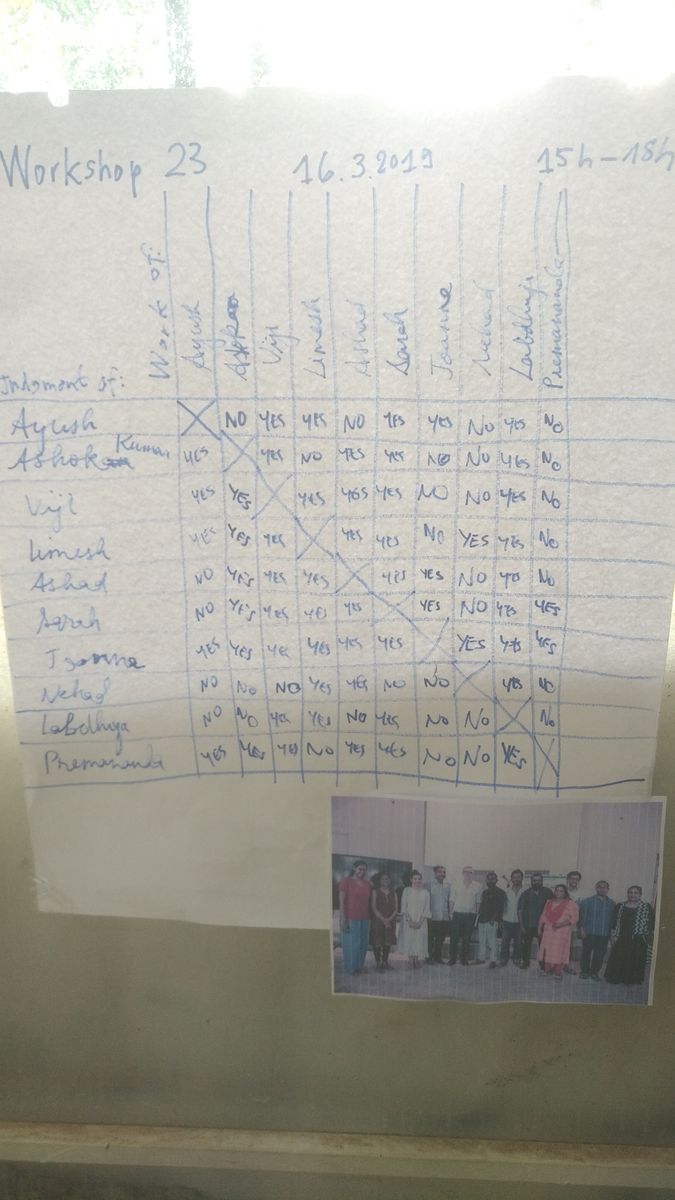 Workshop 23 16.3.2019 15h-18h
Work of:
Ayush Ashok Viji Limesh Ashad Sarah Joanna Nehad Labdhiya Premananda
Judgment of:
Ayush X NO YES YES NO YES YES NO YES NO
Ashok Kumar YES X YES NO YES YES NO NO YES NO
Viji YES YES X YES YES YES NO NO YES NO
Limesh YES YES YES X YES YES NO YES YES NO
Ashad NO YES YES YES X YES YES NO YES NO
Sarah NO YES YES YES YES X YES NO YES YES
Joanna YES YES YES YES YES YES X YES YES YES
Nehad NO NO NO YES YES NO NO X YES
Labdhiya NO NO YES YES NO YES NO NO X NO
Premananda YES YES YES NO YES YES NO NO YES X